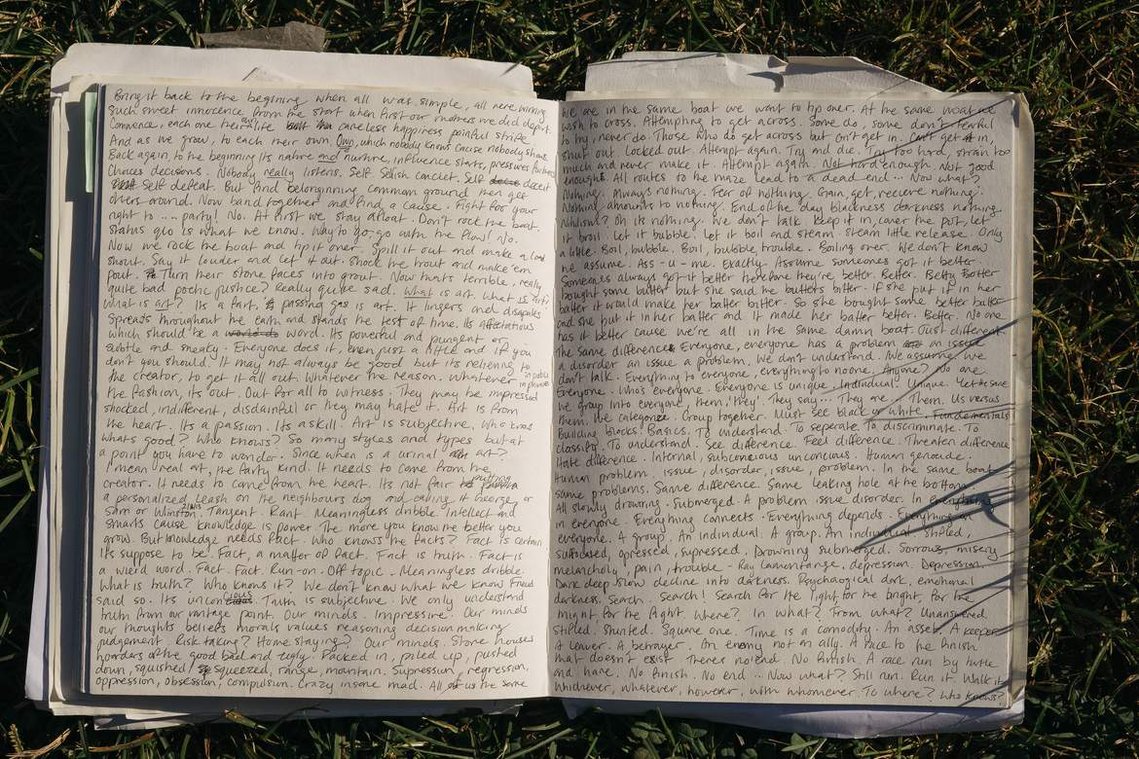 Bring it back to the begining when all was simple, all were
Such sweet innocence from the start when first our mothers we did depart
Commence, each one their own life careless happiness painful strife
And as we grow, to each their own, Own, which nobody knows cause nobody shares
Back again to the beginning its nature and nurture, influence starts, pressures
Choices decisions. Nobody really listens. Self Selfish conciet. Self deceit
Self defeat. But find belongining common ground then get
others around. Now band together and find a cause. Fight for your
right to .... party! No. At first we stay afloat. Don't rock the boat
status quo is what we know. Way to go, go with the flow! No.
Now we rock the boat and tip it over. Spill it out and make a loud
shout. Say it louder and let it out. Shock the trout and make 'em
pout. Turn their stone faces into grout. Now that's terrible, really
quite bad poetic justice? Really quite sad. What is art what is art?
what is art? Its a fart, passing gas is art. It lingers and disapates
Spreads throughout the earth and stands the test of time. Its
which should be a word. Its powerful and pungent or
subtle and sneaky. Everyone does it, even just a little and if you
don't you should. It may not always be good but its relieving to
the creator, to get it all out. Whatever the reason. Whatever in public in private
the fashion, its out. Out for all to witness. They may be impressed
shocked, indifferent, disdainful or they may hate it. Art is from
the heart. Its a passion. Its a skill. Art is subjective, who knows
whats good? Who knows? So many styles and types but at
a point you have to wonder. Since when is a urinal art?
I mean real art, the farty kind. It needs to come from the
creator. It needs to come from the heart. Its not fair putting
a personalized leash on the neighbours dog and calling it George or
Sam or Winston. Tangent. Rant. Meaningless dribble. Intellect and
smarts cause knowledge is power. The more you know the better you
grow. But knowledge needs fact. Who knows the facts? Fact is certain
its suppose to be. Fact, a matter of fact. Fact is truth. Fact is
a wierd word. Fact. Fact. Run-on. Off topic. Meaningless dribble.
What is truth? Who knows it? We don't know what we know Freud
said so. Its unconcious. Truth is subjective. We only understand
truth from our vantage point. Our minds. Impressive. Our minds
our thoughts beliefs morals values reasoning decision making
judgement. Risk taking? Home staying? Our minds. Store houses
hoarders of the good bad and ugly. Packed in, piled up, pushed
down, squished squeezed, range, mountain. Supression, regression,
oppression, obsession, compulsion. Crazy insane mad. All of us the same
We are in the same boat we want to tip over. At the same
wish to cross. Attempting to get across. Some do, some don't. Fearful
to try, never do. Those who do get across but can't get in, can't get in,
shut out. Locked out. Attempt again. Try and die. Try too hard, strain too
much and never make it. Attempt again. Not hard enough, Not good
enough. All routes to the maze lead to a dead end... Now what?
Nothing. Always nothing. Fear of nothing. Gain, get, recieve nothing.
Nothing amounts to nothing. End of the day blackness darkness nothing
Nihilism? Oh its nothing. We don't talk. Keep it in, cover the pot, let
it broil. Let it bubble. Let it boil and steam. Steam little release. Only
a little. Boil, bubble, Boil, bubble trouble. Boiling over. We don't know
we assume. Ass-u-me. Exactly. Assume someones got it better
Someones always got it better therefore they're better. Better. Betty Botter
bought some butter but she said the butters bitter. If she put it in her
batter it would make her batter bitter. So she bought some better butter
and she put it in her batter and it made her batter better. Better. No one
has it better cause we're all in the same damn boat. Just different
the same difference. Everyone, everyone has a problem an issue
a disorder an issue a problem. We don't understand. We assume. We
don't talk. Everything to everyone, everything to noone. Anyone? No one
Everyone. Who's everyone. Everyone is unique. Individual. Unique. Yet
we group into everyone. Them, 'they'. They say... They are. Them. Us versus
them. We categorize. Group together. Must see black or white. Fundamentals
Building blocks. Basics. To understand. To seperate. To discriminate. To
classify. To understand. See difference. Feel difference. Threaten difference
Hate difference. Internal, subconcious unconcious. Human genocide.
Human problem. issue, disorder, issue, problem. In the same boat
same problems. Same difference. Same leaking hole at the bottom
All slowly drowning. Submerged. A problem issue disorder. In everything
in everyone. Everything connects. Everything depends. Everything in
everyone. A group. An individual. A group. An individual stifled,
suffocated, opressed, supressed. Drowning submerged. Sorrows, misery
melancholy, pain, trouble. Ray Lamontange, depression. Depression
Dark deep slow decline into darkness. Psychological dark, emotional
darkness. Search. Search! Search for the light for the bright, for the
might, for the fight. Where? In what? From what? Unanswered
stifled stunted. Square one. Time is a comodity. An asset. A keeper
A lover. A betrayer. An enemy not an ally. A race to the finish
that doesn't exist. Theres no end. No finish. A race run by turtle
and hare. No finish. No end... Now what? Still run. Run it. Walk it
whichever, whatever, however, with whomever. To where? Who knows?